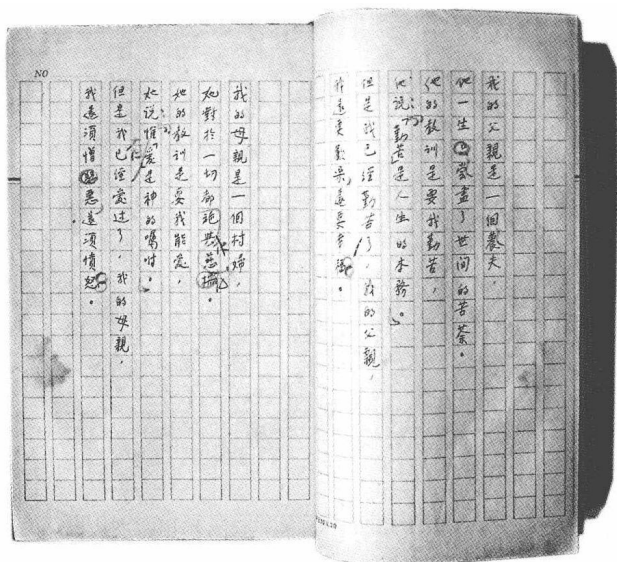 我的父親是一個農夫，
他一生嘗盡了世間的苦荼。
他的教訓是要我勤苦，
他說：「勤苦是人生的本務。」
但是我已經勤苦了，我的父親，
我還要歡樂，還要幸福。
NO
我的母親是一個村婦，
她對於一切都施與慈
她的教訓是要我能愛，
她說：「惟仁愛是神的囑咐。」
但是我已經愛過了，我的母親，
我還須憎惡，還須憤怒。